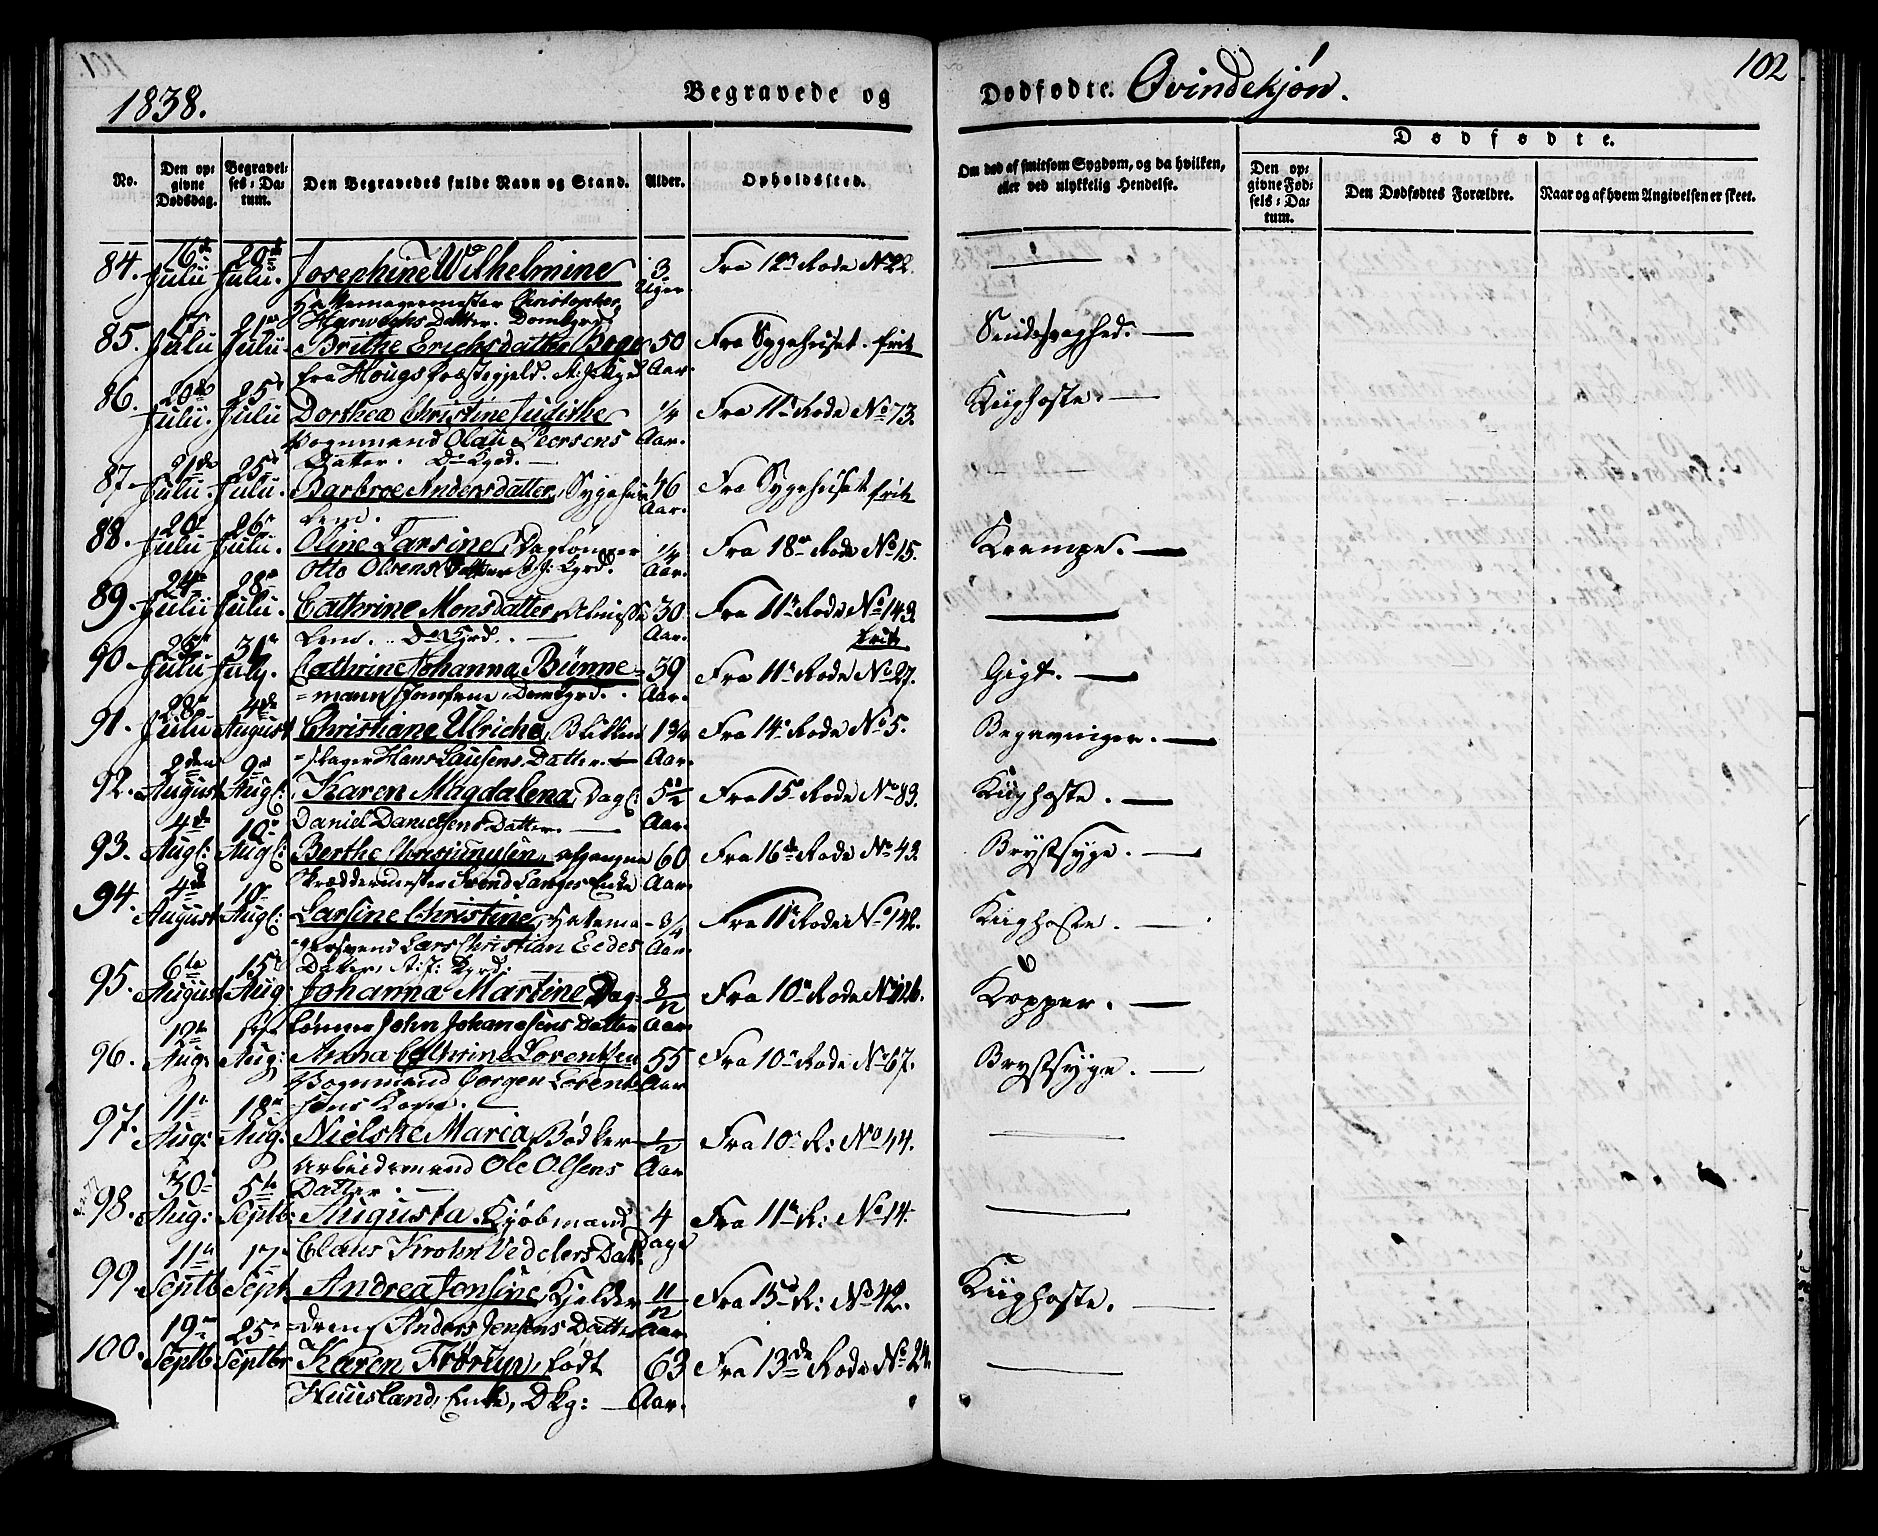 102
1838.
Begravede og
Dødfødte. Qvindekjøn.
No.
Den opgivne Dødsdag.
Begravelses-Datum.
Den Begravedes fulde Navn og Stand.
Alder.
Opholdssted.
Om død af smitsom Sygdom, og da hvilken, eller ved ulykkelig Hendelse.
Dødfødte.
Den opgivne Fødsels-Datum.
Den Dødfødtes Forældre.
Naar og af hvem Angivelsen er skeet.
84. 16de Julii 20de Julii. Josephine Wilhelmine 3 Uger Fra 12te Rode No 22. —
Hattemagermester Christopher
Datter. Domkgrd.
85. Julii 21de Julii. Brithe Erichsdatter 50 Aar. Fra Sygehuset. frit —
fra Hougs Præstegjeld.
86. 20de Julii. 25de Julii Dorthea Christine Judithe 1/4 Aar. Fra 11te Rode No 73. Kighoste. —
Vognmand Olaus Peersens
Datter. Do Kgrd. —
87. 21de Julii. 25de Julii. Barbroe Andersdatter, 46 Aar. Fra Sygehuset frit —
Lem.
88. 20de Julii 26de Julii. Oline Larsine, Daglønner 1/4 Aar. Fra 18de Rode No 15. Krampe. —
Otto Olsens Datter Kgrd.
89. 24de Julii 28de Julii. Cathrine Monsdatter, 30 Aar. Fra 11te Rode No 143. frit —
Lem. Do Kgrd. —
90. Julii 31te July. Cathrine Johanna Bünne= 39 Aar. Fra 11te Rode No 27. Gigt. —
=mann, Domkgrd.
91. 28de Julii 4de August Christiane Ulriche, Blikken 1 3/4 Aar. Fra 14de Rode No 5. —
=slager Hans Lausens Datter —
92. 2den August 9de Augl: Karen Magdalena, Dagl: 5 1/2 Aar. Fra 15de Rode No 83. Kighoste. —
Daniel Danielsens Datter. —
93. 4de Augl: 10de Augl: Berthe afgangne 60 Aar. Fra 16de Rode No 43. Brystsyge. —
Skræddermester Svend Langes Enke
94. 4de August 10de Augl: Larsine Christine, Hatema- 3/4 Aar. Fra 11te Rode No 142. Kighoste. —
gersvend Lars Christian Eedes
Datter, Kgrd:
95. 6te August 15de Aug: Johanna Martine, Dag= 8/12 Aar. Fra 10de Rode No 126. Kopper. —
lønner John Johanesens Datter
96. 12te Aug: Aug: Anna Cathrine Lorentsen 55 Aar Fra 10de Rode No 67. Brystsyge. —
Vognmand Jørgen Lorent=
sens Kone. —
97. 11te Aug: 18de Aug: Nielske Maria, Bødker 1/2 Aar Fra 10de R: No 44. —
Arbeidsmand Ole Olsens
Datter. —
98. 30te Aug: 5te Septb: Augusta, Kjøbmand 4 Dage Fra 11te R: No 14. —
Claus Krohn Vedelers Datt:
99. 11te Septb 17de Septb. Andrea Jonsine Kjelder 11/12 Aar Fra 15de R: No 42. Kighoste. —
Anders Jensens Datter
100. 19de Septb 25de Septbr Karen Frørup, født 63 Aar. Fra 13de Rode No 24. —
Huusland, Enke, Dkg: —